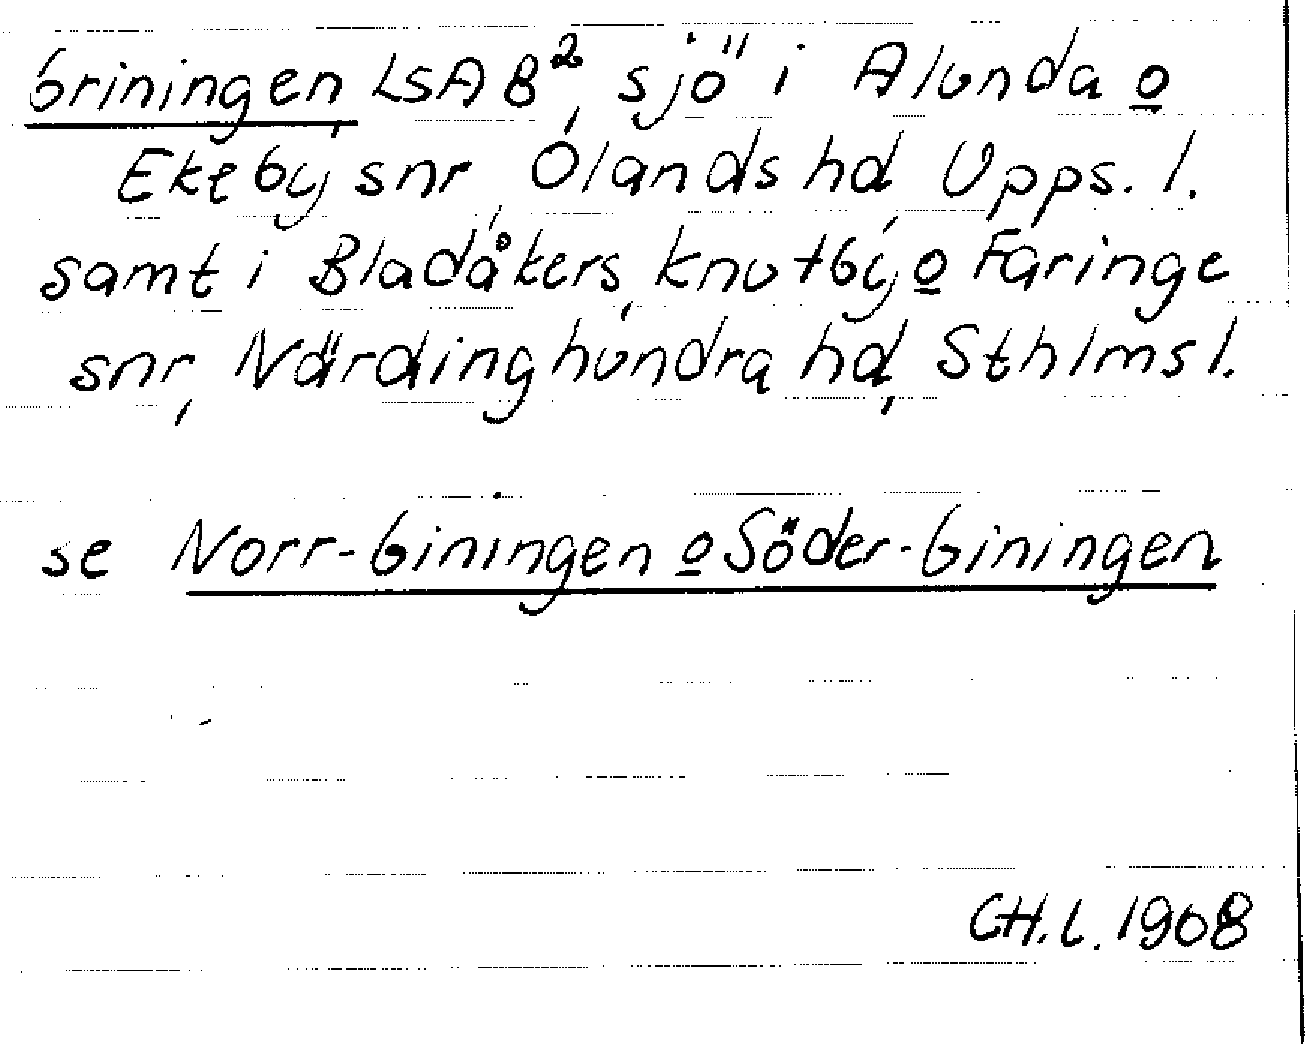 Griningen, LSAB², sjö i Alunda o
Ekeby snr, Olands hd, Upps. l.
samt i Bladåkers, Knutby o Faringe
snr, Närdinghundra hd, Sthlms l.
se Norr-Giningen o Söder-Giningen
CH.L. 1908